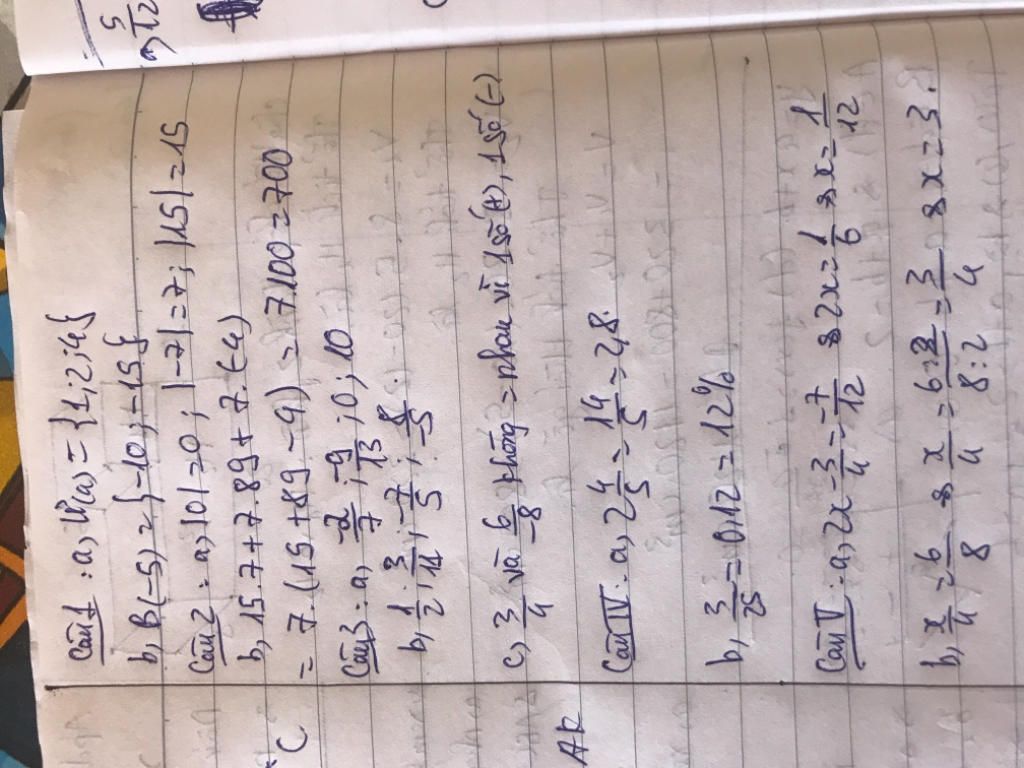 Câu 1: a, Ư(4) = {1; 2; 4}
b, B(-5) = {-10; -15}
Câu 2: a, |0| = 0; |-7| = 7; |15| = 15
b, 15.7 + 7.89 + 7.(-4)
= 7.(15 + 89 - 4) = 7.100 = 700
Câu 3: a, -2/7; -9/13; 0; 10
b, 1/2; 3/11; -7/5; 8/-5.
c, 3/4 và 6/-8 không = nhau vì 1 số (+), 1 số (-)
Câu IV: a, 2 4/5 = 14/5 = 2,8.
b, 3/25 = 0,12 = 12%
Câu V: a, 2x - 3/4 = -7/12 => 2x = 1/6 => x = 1/12
b, x/4 = 6/8 => x/4 = 6:2/8:2 = 3/4 => x = 3.
C
AR
a, 5/12